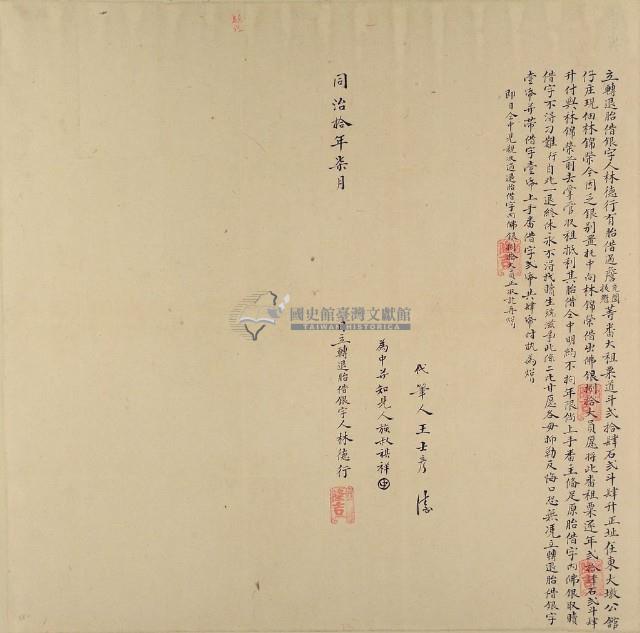 立轉退胎借銀字人林德行有胎借過 番大租粟道斗弍拾肆石弍斗肆升正址在東大墩公館
仔庄現佃林錦榮今因乏銀別置托中向林錦榮借出佛銀捌拾大員愿將此番租粟逐年弍拾肆石弍斗肆
升付與林錦榮前去掌管收租抵利其胎借仝中明約不拘年限倘上手番主備足原胎借字內佛銀取贖
借字不得刁難行自此一退終休永不得找贖生端滋事此係二比甘愿各毋抑勒反悔口恐無凭立轉退胎借銀字
壹帋并帶借字壹帋上手番借字弍帋共肆帋付執為炤
即日仝中見親收過退胎借字內佛銀捌拾大員正收訖再炤
代筆人王士彥
為中并知見人族叔祺祥
立轉退胎借銀字人林德行
同治拾年柒月
國史館臺灣文獻館
TAIWAN HISTORICA